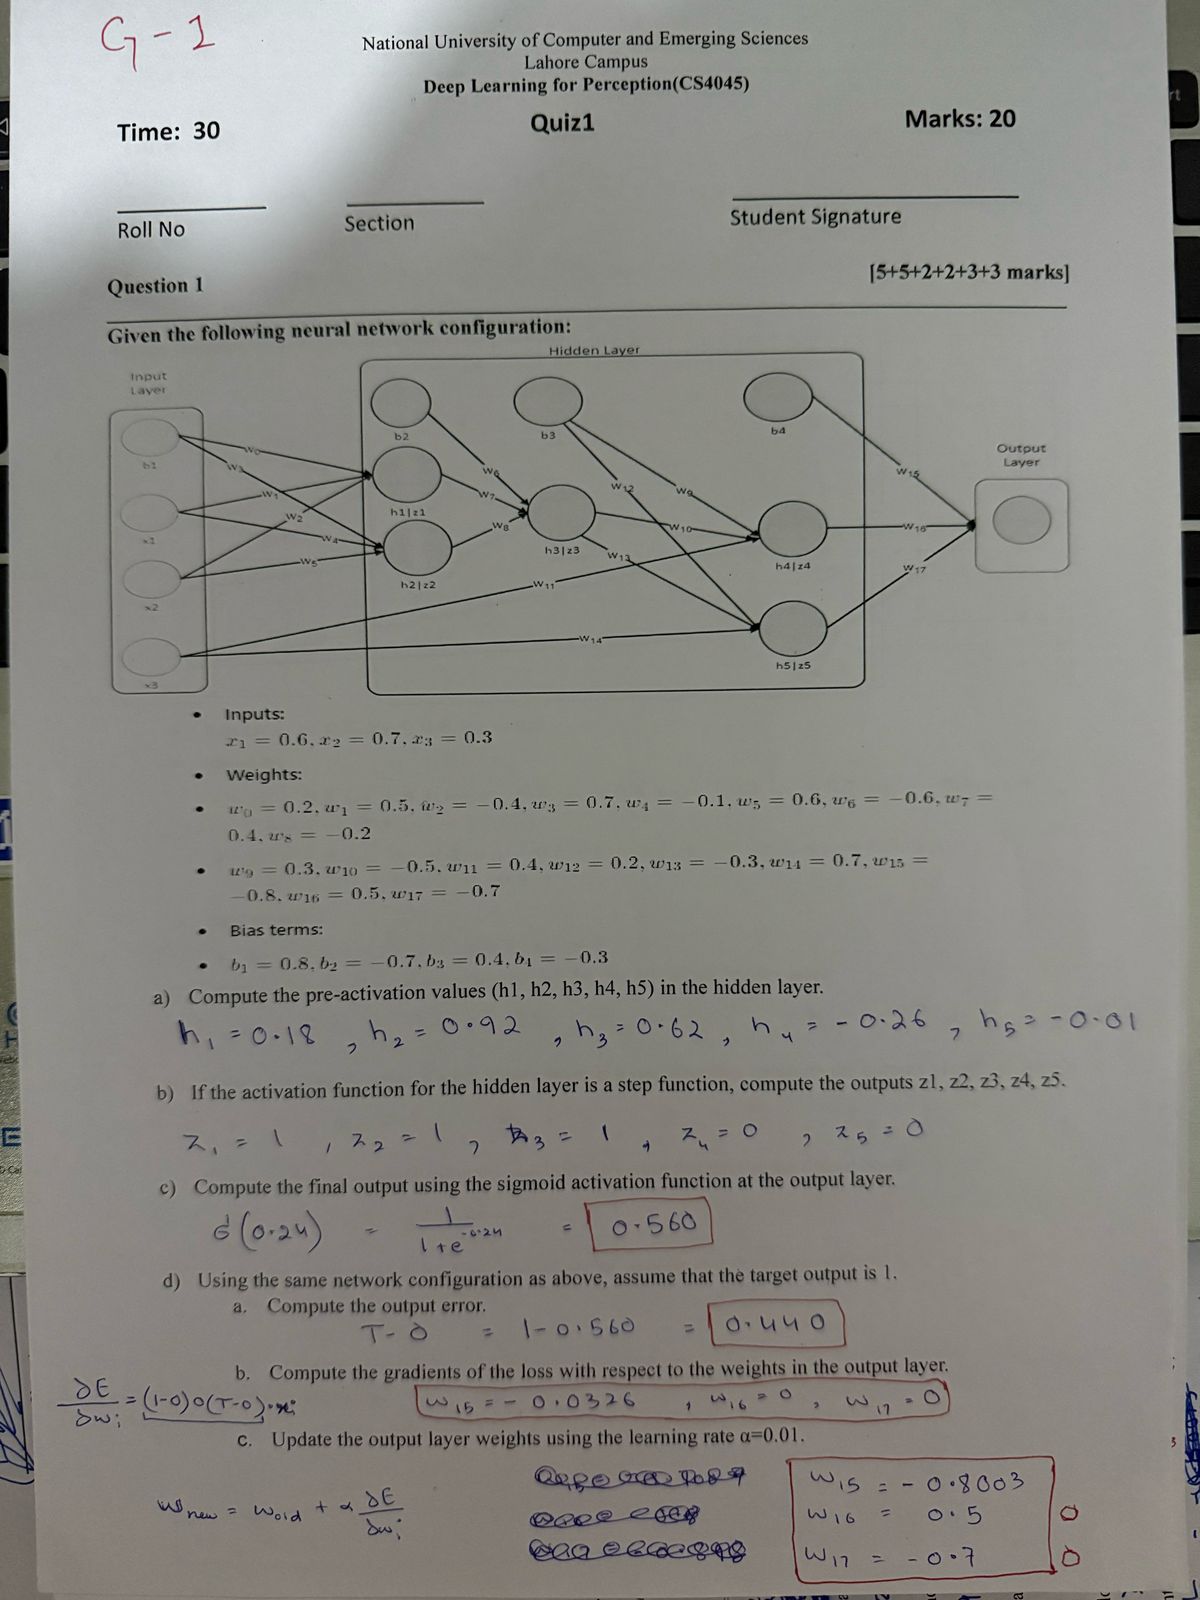 G-1
National University of Computer and Emerging Sciences
Lahore Campus
Deep Learning for Perception(CS4045)
Time: 30 Quiz1 Marks: 20
Roll No Section Student Signature
Question 1 [5+5+2+2+3+3 marks]
Given the following neural network configuration:
Hidden Layer
Input
Layer
b1
x1
x2
x3
b2
h1|z1
h2|z2
b3
h3|z3
b4
h4|z4
h5|z5
Output
Layer
w0
w3
w1
w2
w4
w5
w6
w7
w8
w12
w9
w10
w13
w11
w14
w15
w16
w17
• Inputs:
x₁ = 0.6, x₂ = 0.7, x₃ = 0.3
• Weights:
• w₀ = 0.2, w₁ = 0.5, w₂ = −0.4, w₃ = 0.7, w₄ = −0.1, w₅ = 0.6, w₆ = −0.6, w₇ =
0.4, w₈ = −0.2
• w₉ = 0.3, w₁₀ = −0.5, w₁₁ = 0.4, w₁₂ = 0.2, w₁₃ = −0.3, w₁₄ = 0.7, w₁₅ =
−0.8, w₁₆ = 0.5, w₁₇ = −0.7
• Bias terms:
• b₁ = 0.8, b₂ = −0.7, b₃ = 0.4, b₄ = −0.3
a) Compute the pre-activation values (h1, h2, h3, h4, h5) in the hidden layer.
h₁ = 0.18 , h₂ = 0.92 , h₃ = 0.62 , h₄ = -0.26 , h₅ = -0.01
b) If the activation function for the hidden layer is a step function, compute the outputs z1, z2, z3, z4, z5.
z₁ = 1 , z₂ = 1 , z₃ = 1 , z₄ = 0 , z₅ = 0
c) Compute the final output using the sigmoid activation function at the output layer.
σ(0.24) = 1/(1+e^-0.24) = 0.560
d) Using the same network configuration as above, assume that the target output is 1.
a. Compute the output error.
T-O = 1-0.560 = 0.440
b. Compute the gradients of the loss with respect to the weights in the output layer.
∂E/∂wᵢ = (1-O)O(T-O)·xᵢ w₁₅ = -0.0326 , w₁₆ = 0 , w₁₇ = 0
c. Update the output layer weights using the learning rate α=0.01.
w₁₅ = -0.8003
w new = w old + α ∂E/∂wᵢ w₁₆ = 0.5 0
w₁₇ = -0.7 0